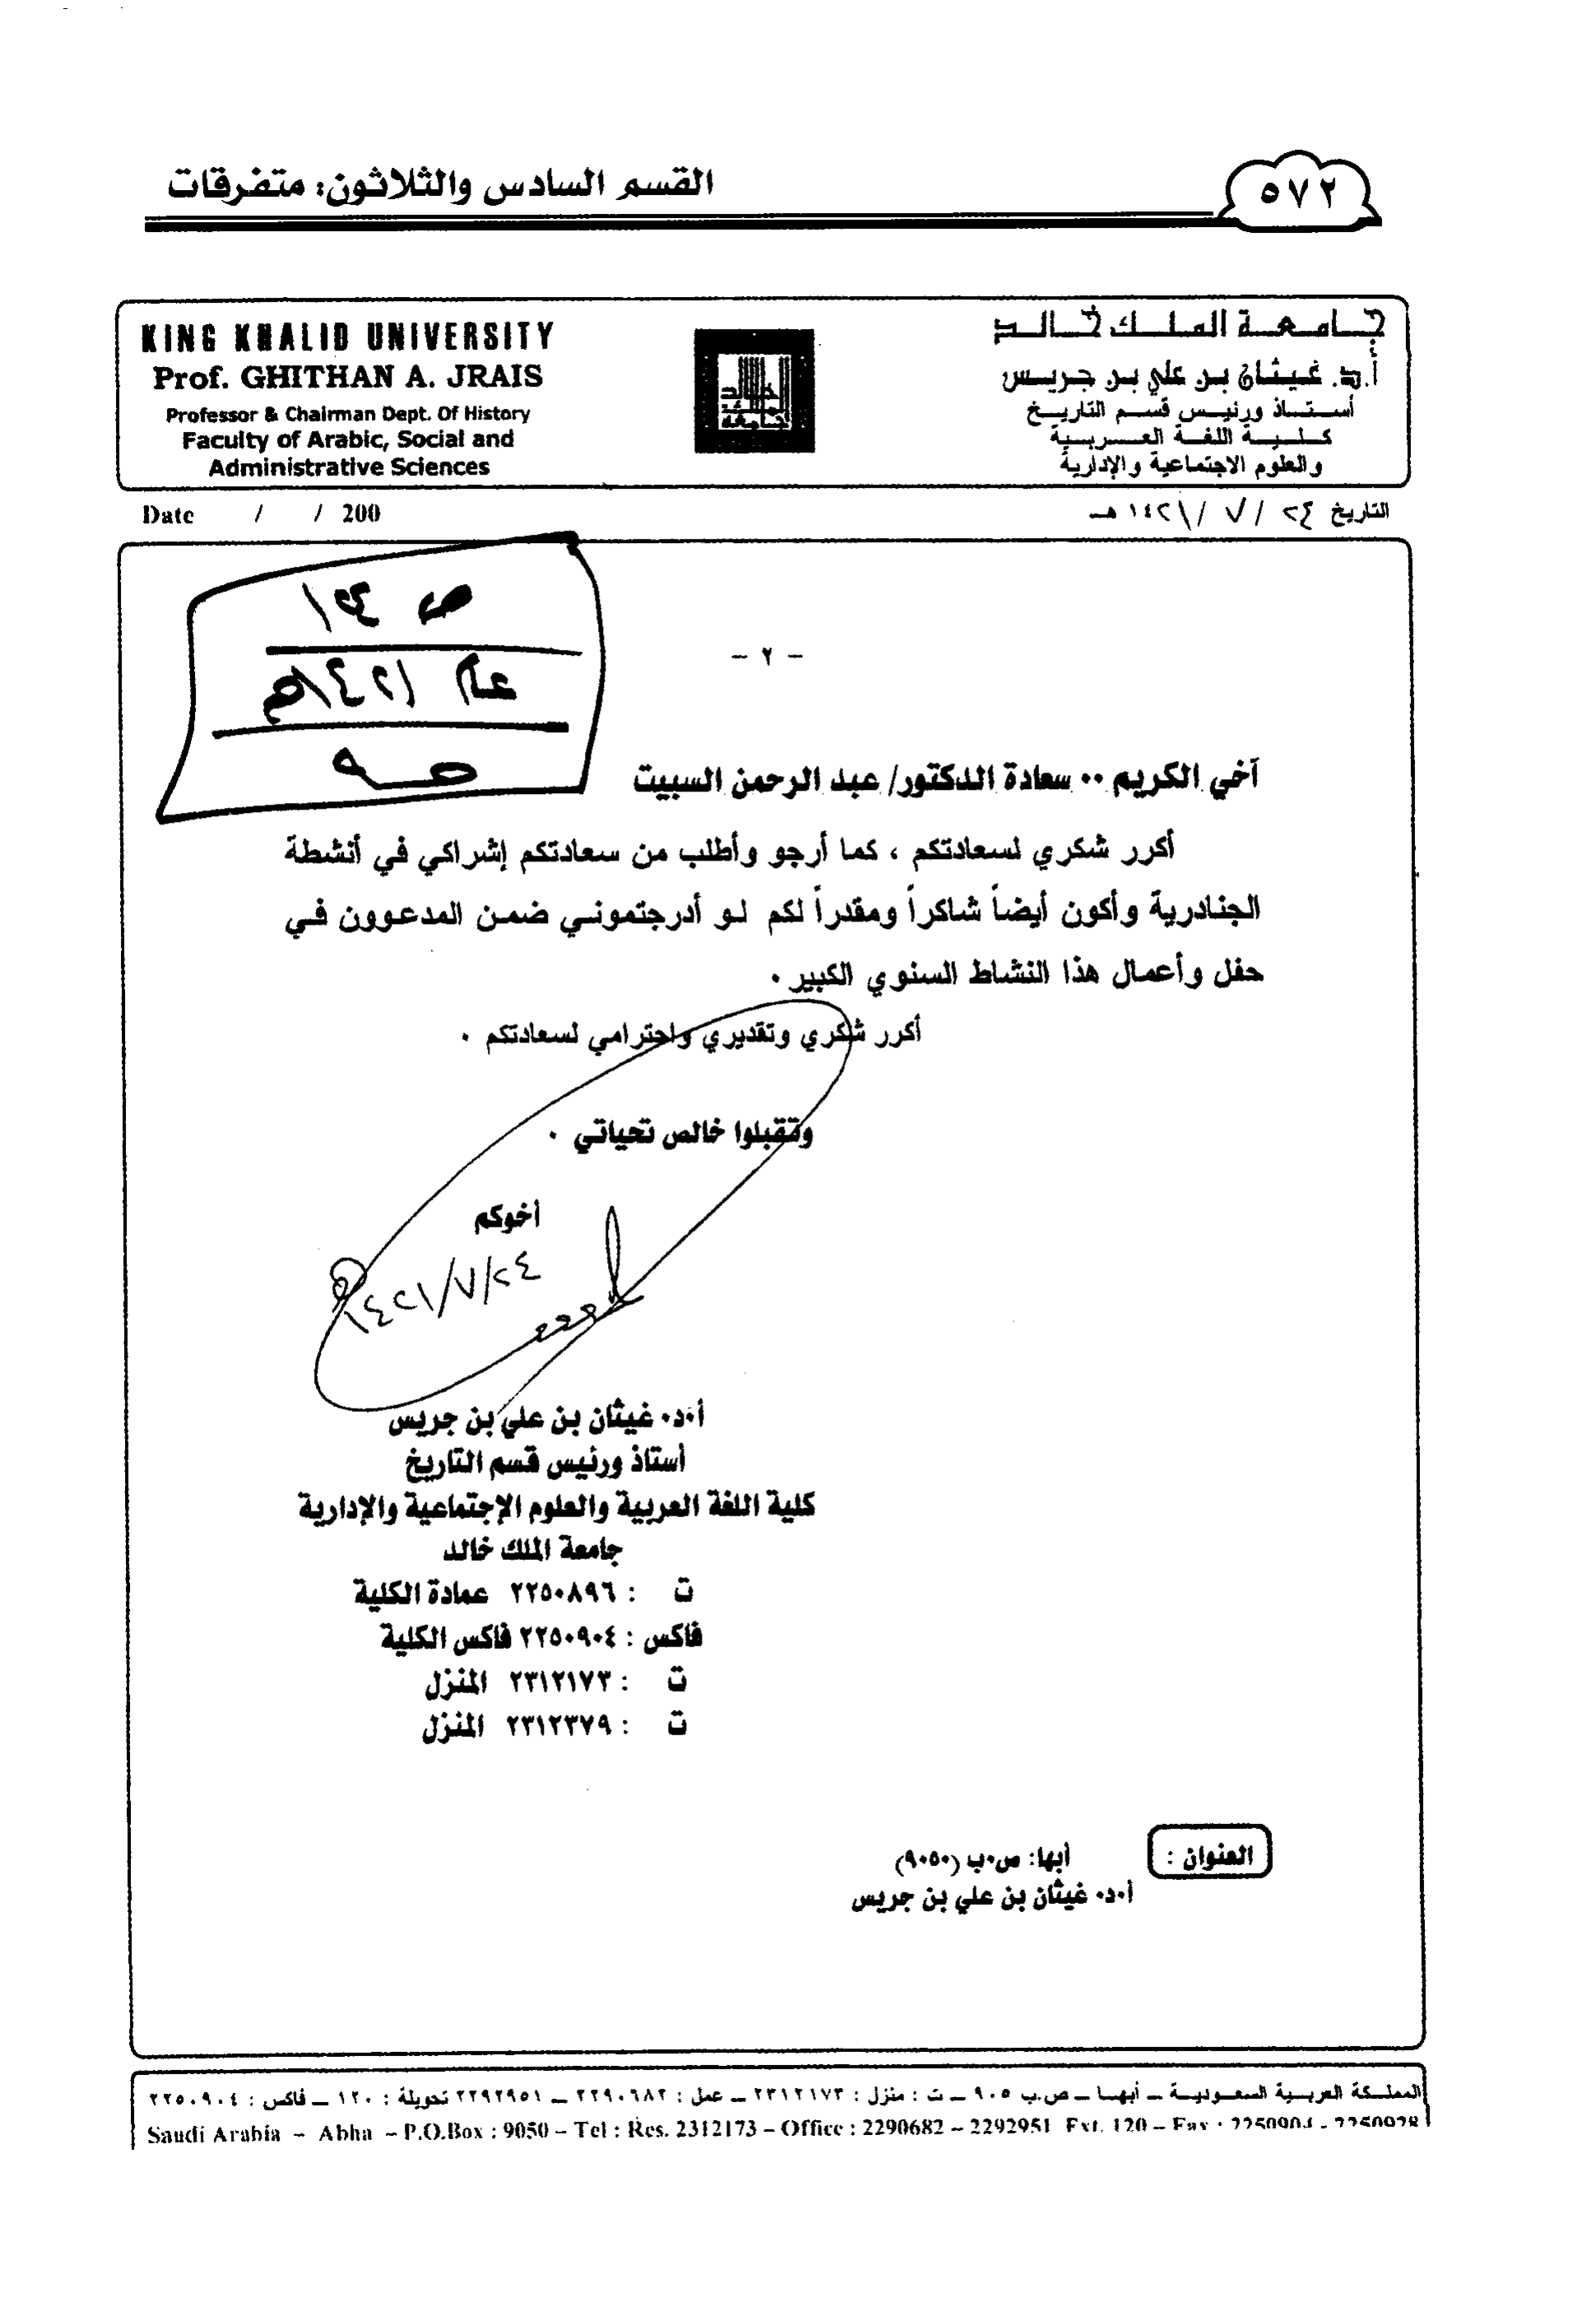 القسم السادس والثلاثون: متفرقات
٥٧٢
جامعة الملك خالد
أ.د. غيثان بن علي بن جريس
أستاذ ورئيس قسم التاريخ
كلية اللغة العربية
والعلوم الاجتماعية والإدارية
KING KHALID UNIVERSITY
Prof. GHITHAN A. JRAIS
Professor & Chairman Dept. Of History
Faculty of Arabic, Social and
Administrative Sciences
التاريخ ٢٤ / ٧ / ١٤٢١ هـ
Date / / 200
عام ١٤٢١هـ
- ٢ -
آخي الكريم ٠٠ سعادة الدكتور/ عبد الرحمن السبيت
أكرر شكري لسعادتكم ، كما أرجو وأطلب من سعادتكم إشراكي في أنشطة
الجنادرية وأكون أيضاً شاكراً ومقدراً لكم لو أدرجتموني ضمن المدعوون في
حفل وأعمال هذا النشاط السنوي الكبير ٠
أكرر شكري وتقديري واحترامي لسعادتكم ٠
وتقبلوا خالص تحياتي ٠
أخوكم
١٤٢١/٧/٢٤
أ٠د٠ غيثان بن علي بن جريس
أستاذ ورئيس قسم التاريخ
كلية اللغة العربية والعلوم الإجتماعية والإدارية
جامعة الملك خالد
ت : ٢٢٥٠٨٩٦ عمادة الكلية
فاكس : ٢٢٥٠٩٠٤ فاكس الكلية
ت : ٢٣١٢١٧٣ المنزل
ت : ٢٣١٢٣٧٩ المنزل
العنوان : أبها: ص٠ب (٩٠٥٠)
أ٠د٠ غيثان بن علي بن جريس
المملكة العربية السعودية – أبها – ص.ب ٩٠٥ – ت : منزل : ٢٣١٢١٧٣ – عمل : ٢٢٩٠٦٨٢ – ٢٢٩٢٩٥١ تحويلة : ١٢٠ – فاكس : ٢٢٥٠٩٠٤
Saudi Arabia – Abha – P.O.Box : 9050 – Tel : Res. 2312173 – Office : 2290682 – 2292951 Ext. 120 – Fax : 2250904 - 2250928